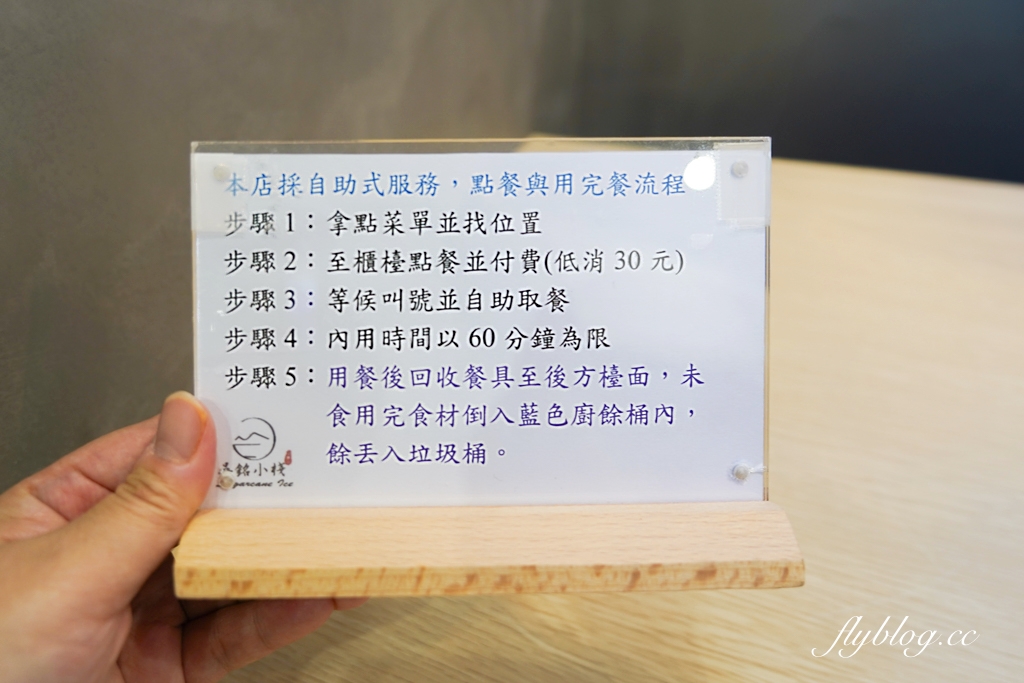 本店採自助式服務，點餐與用完餐流程
步驟 1：拿點菜單並找位置
步驟 2：至櫃檯點餐並付費(低消 30 元)
步驟 3：等候叫號並自助取餐
步驟 4：內用時間以 60 分鐘為限
步驟 5：用餐後回收餐具至後方檯面，未
食用完食材倒入藍色廚餘桶內，
餘丟入垃圾桶。
銘小棧
Ice
flyblog.cc